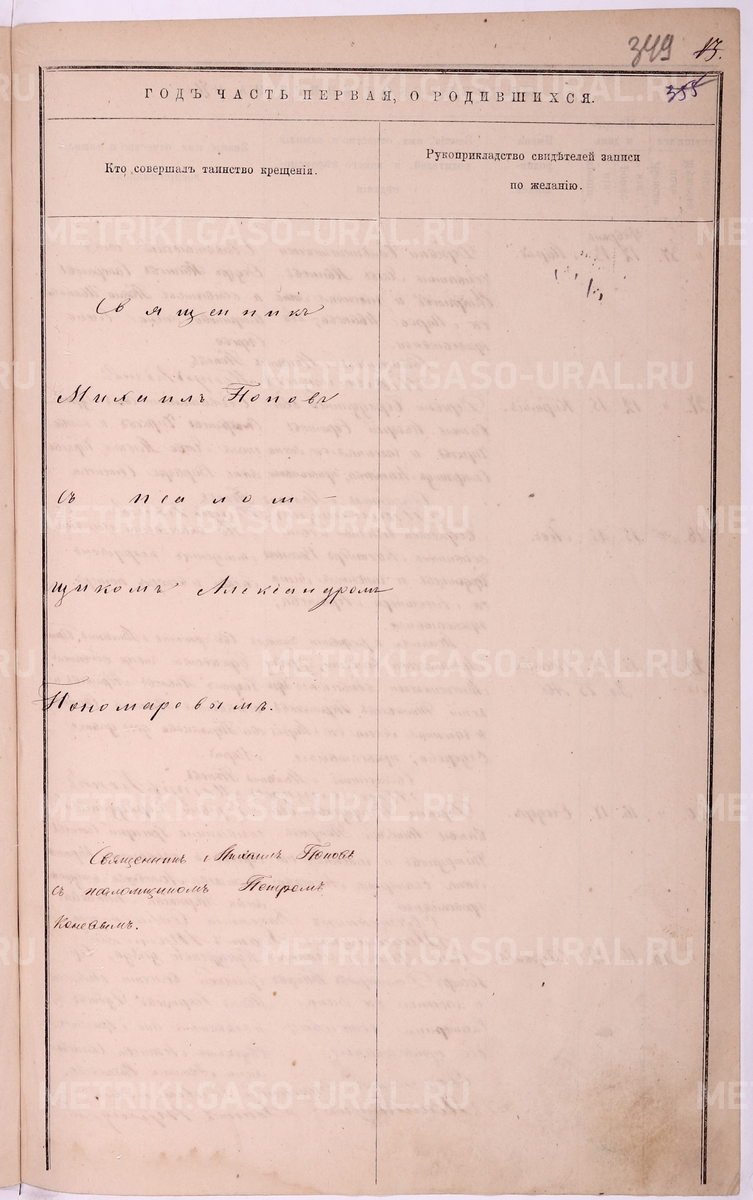 349
13.
355
ГОДЪ ЧАСТЬ ПЕРВАЯ, О РОДИВШИХСЯ.
Кто совершалъ таинство крещенія.
Рукоприкладство свидѣтелей записи
по желанію.
Священникъ
Михаилъ Поповъ
съ псалом-
щикомъ Александромъ
Пономаровымъ.
Священникъ Михаилъ Поповъ
съ псаломщикомъ Петромъ
METRIKI.GASO-URAL.RU